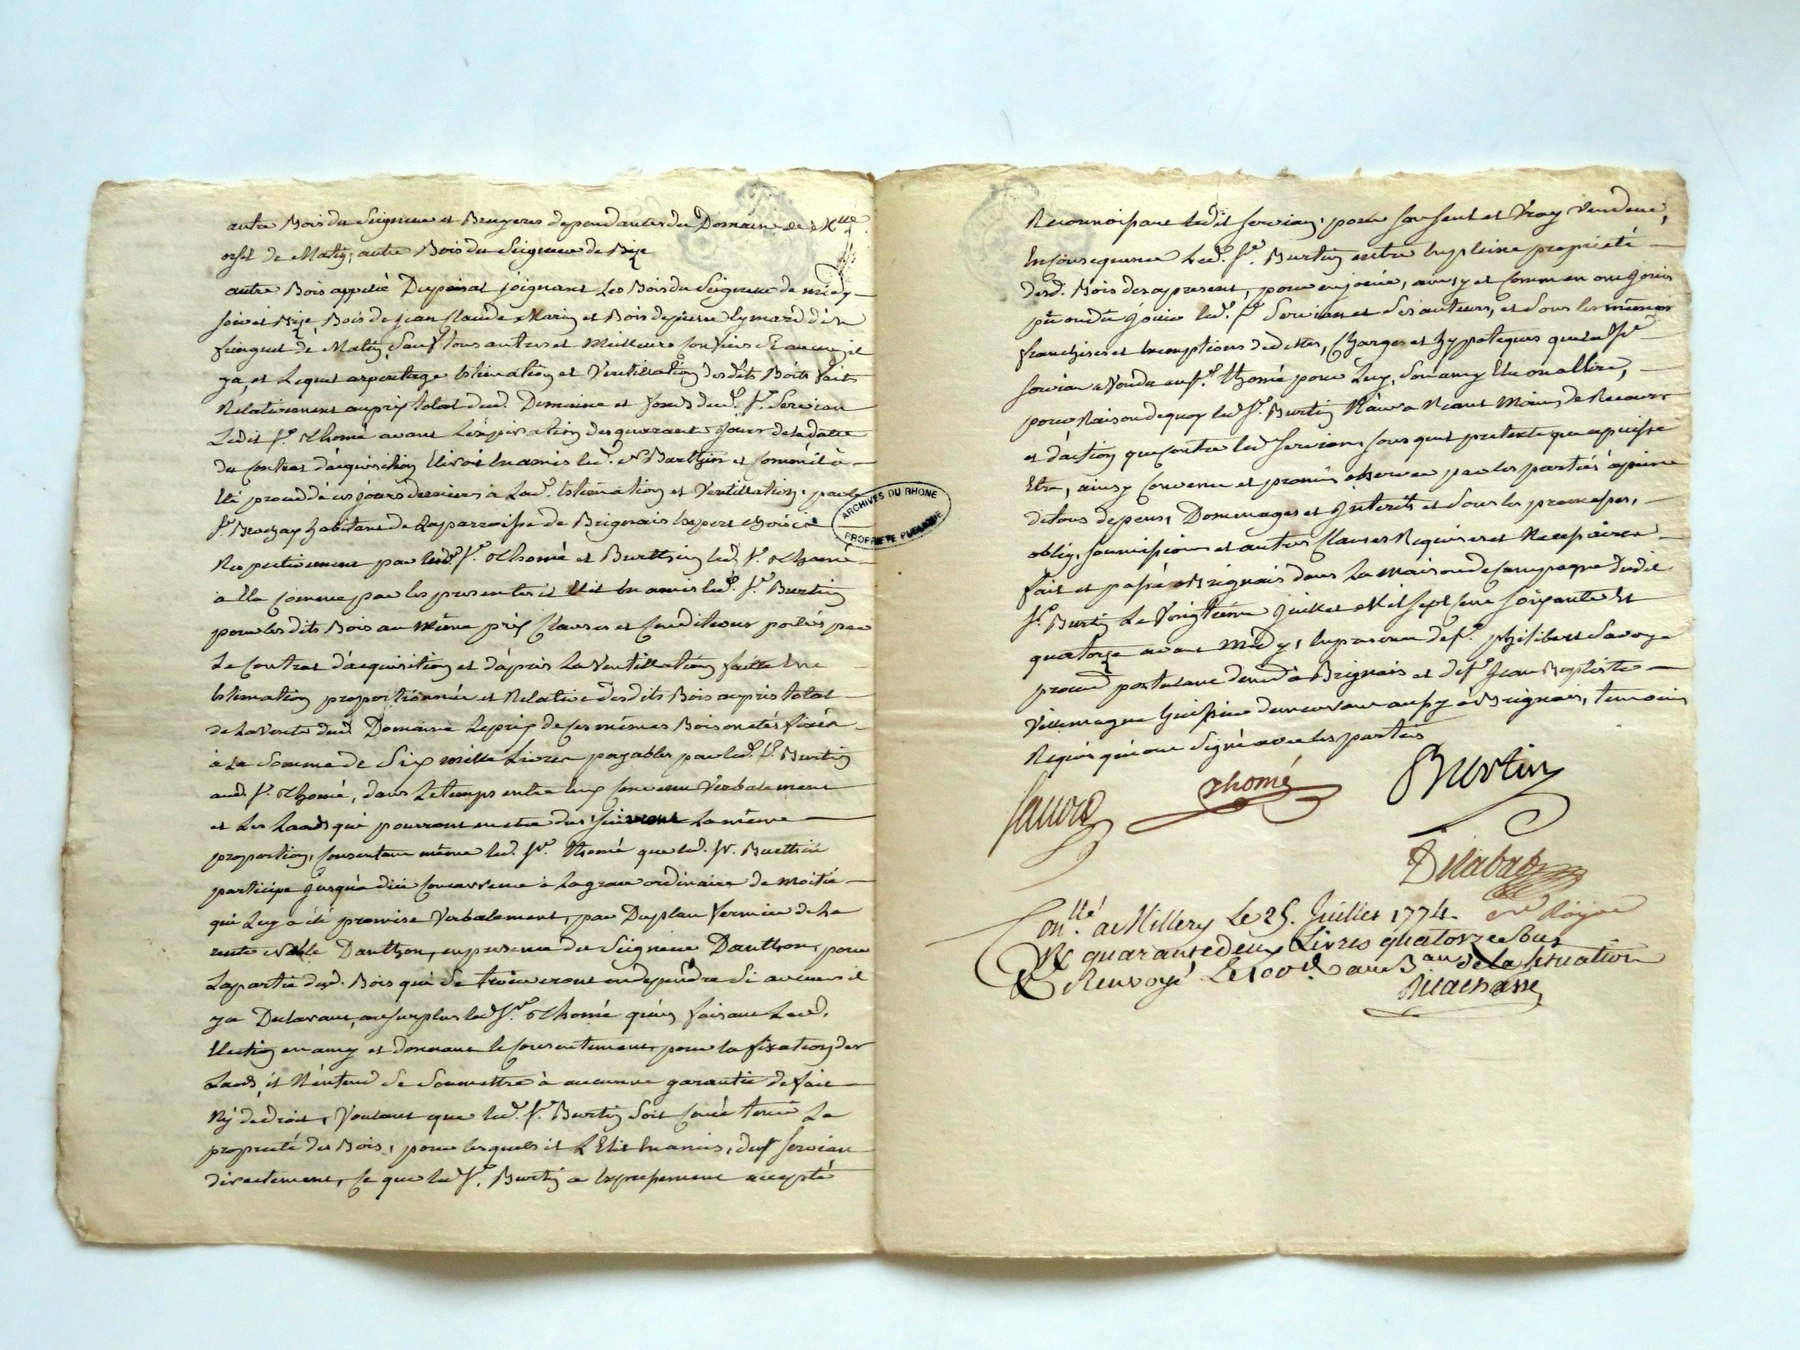 autre Bois du Seigneur et Bruyeres dependantes du Domaine de Mlle
orset de Matiz, autre Bois du Seigneur de Bize
autre Bois appellé Dupoisat joignant les Bois du Seigneur de midy
soir et Bize, Bois de jean Claude Marin et Bois de pierre
de Matin, Sauf tous autres et Meilleurs Confins Si aucun il
y a, et Lequel arpentage Estimation et Ventillation desdits Bois faits
Relativement au prix total dud. Domaine et fonds dud. Sr. Servian
Ledit Sr. Thomé avant L'expiration des quarante jours de la datte
du Contrat d'acquisition Eliroit en amis led. Sr Burthin et Comme il a
Eté procedé ces jours derniers à Lad. Estimation et Ventillation, par le
Sr. Brochay habitant de la parroisse de Brignais Expert choisi
Respectivement par lesd. Srs. Thomé et Burthin led. Sr. Thomé
a Elu Comme par les presentes il Elit en amis led. Sr. Burtin
pour lesdits Bois au Même prix Clauses et Conditions portés par
Le Contrat d'acquisition et d'apres La Ventillation faitte Une
Estimation proportionnée et Relative desdits Bois au prix total
de la Vente dud. Domaine Le prix de ces mêmes Bois ont étés fixés
à La Somme de Six mille Livres payables par led. Sr. Burtin
aud. Sr. Thomé, dans Le temps entre Eux Convenu Verbalement
et Les Laods qui pourront en etre dus Suivront La même
proportion, Consentant même led. Sr. Thomé que led. Sr. Burthin
participe jusqu'à düe Concurrence à La grace ordinaire de Moitié
qui Luy a été promise Verbalement, par Duplan fermier de La
rente Noble Dauthon, en presence du Seigneur Dauthon, pour
La partie desd. Bois qui Se trouveront en dependre Si aucun il
y a Declarant, au Surplus led. Sr. Thomé qu'en faisant Lad.
Election en amy et donnant le Consentement, pour la fixation des
Laods, il N'entend Se Soumettre à aucunne garantie de fait
Ny de droit, Voulant que led. Sr. Burtin Soit Censé tenir La
proprieté des Bois, pour lesquels il L'Elit en amis, dud. Servian
directement, Ce que led. Sr. Burtin a Expressement accepté
ARCHIVES DU RHONE
PROPRIÉTÉ PUBLIQUE
Reconnoissant ledit Servian, pour Son Seul et Vray Vendeur,
En Consequence Led. Sr. Burtin entre en pleine proprieté
desd. Bois des apresent, pour en joüir, ainsy et Comme en ont joui
pu ou dû joüir led. Sr. Servian et Ses auteurs, et Sous les mêmes
franchises et Exemptions de dettes, Charges et hypoteques que led. Sr.
Servian a Vendu au Sr. Thomé pour Luy, Son amy Elu ou a Elire,
pour Raison de quoy led. Sr. Burtin N'aura Neant Moins de Recours
et d'action que Contre led. Servian Sous quel pretexte que ce puisse
Etre, ainsy Convenu et promis observer par les parties à peine
de tous depens, Dommages et Interets et Sous les promesses,
oblig. Soumissions et autres Clauses Requises et Necessaires
fait et passé a Brignais dans La maison de Campagne dudit
Sr. Burtin Le Vingtieme juillet Mil sept Cent Soixante Et
quatorze avant Midy, En presence de Sr. philibert Savoye
procureur postulant demt à Brignais et de Sr. Jean Baptiste
Villemagne huissier demeurant aussy à Brignais, temoins
Requis qui ont Signé avec les parties
Savoye
Thomé
Burtin
Delabat
nre Royal
Conllé à Millery Le 25. Juillet 1774.
R quarante deux Livres quatorze Sous
Renvoyé Le 100e. au B.au de la Situation
Delachasse